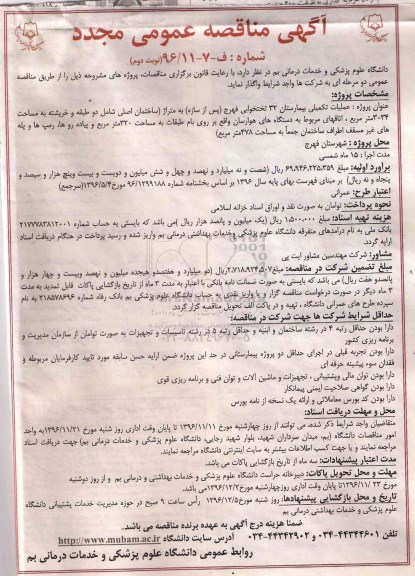 آگهی مناقصه عمومی مجدد
شماره: ف-۷-۹۶/۱۱ (نوبت دوم)
دانشگاه علوم پزشکی و خدمات درمانی بم در نظر دارد، با رعایت قانون برگزاری مناقصات، پروژه های مشروحه ذیل را از طریق مناقصه
عمومی دو مرحله ای به شرکت ها واجد شرایط واگذار نماید.
مشخصات پروژه:
عنوان پروژه: عملیات تکمیلی بیمارستان ۳۲ تختخوابی فهرج (پس از سازه) به متراژ (ساختمان اصلی شامل دو طبقه و خرپشته به مساحت
۲۰۳۴متر مربع، اتاقهای مربوط به دستگاه های هوارسان واقع بر روی بام طبقات به مساحت ۳۲۰متر مربع و پیاده رو ها، رمپ ها و پله
های غیر مسقف اطراف ساختمان جمعاً به مساحت ۴۷۸متر مربع)
محل پروژه: شهرستان فهرج
مدت اجرا: ۱۵ ماه شمسی
برآورد اولیه: مبلغ ۶۹,۹۴۶,۲۲۵,۳۵۹ ریال (شصت و نه میلیارد و نهصد و چهل و شش میلیون و دویست و بیست وپنج هزار و سیصد و
پنجاه و نه ریال) بر مبنای فهرست بهای پایه سال ۱۳۹۶ بر اساس بخشنامه شماره ۹۶/۱۲۹۹۱۸۸ مورخ۱۳۹۶/۵/۴(سرجمع)
اعتبار طرح: عمرانی
نحوه پرداخت: توامان به صورت نقد و اوراق اسناد خزانه اسلامی
هزینه تهیه اسناد: مبلغ ۱,۵۰۰,۰۰۰ ریال (یک میلیون و پانصد هزار ریال) می باشد که بایستی به حساب شماره ۲۱۷۷۷۸۳۸۱۲۰۰۱
بانک ملی به نام درآمدهای متفرقه دانشگاه علوم پزشکی و خدمات بهداشتی درمانی بم واریز شده و رسید پرداخت در هنگام دریافت اسناد
ارایه گردد.
مشاور: شرکت مهندسین مشاور ایت پی
مبلغ تضمین شرکت در مناقصه: مبلغ۲,۷۱۸,۹۲۴,۵۰۷ریال (دو میلیارد و هفتصدو هیجده میلیون و نهصد وبیست و چهار هزار و
پانصدو هفت ریال) می باشد که بایستی به صورت ضمانت نامه بانکی با اعتبار به مدت ۳ ماه از تاریخ بازگشایی پاکات قابل تمدید به مدت
۳ ماه دیگر در صورت درخواست مناقصه گزار و یا واریز نقدی به حساب دانشگاه علوم پزشکی بم بانک رفاه شماره ۲۱۸۵۷۸۶۹۶ به نام
سپرده طرح های عمرانی دانشگاه، تهیه و در پاکت الف تحویل مناقصه گزار گردد.
حداقل شرایط شرکت ها جهت شرکت در مناقصه:
دارا بودن حداقل رتبه ۴ در رشته ساختمان و ابنیه و حداقل رتبه ۵ در رشته تاسیسات و تجهیزات به صورت توامان از سازمان مدیریت و
برنامه ریزی کشور
دارا بودن تجربه قبلی در اجرای حداقل دو پروژه بیمارستانی در حد این پروژه ضمن ارایه حسن سابقه مورد تایید کارفرمایان مربوطه و
فقدان سوء پیشینه حرفه ای
دارا بودن توان مالی وپشتیبانی، تجهیزات و ماشین آلات و توان فنی و برنامه ریزی قوی
دارا بودن گواهی صلاحیت ایمنی پیمانکار
دارا بودن کد بورس معاملاتی و ارائه یک نسخه از نامه بورس
محل و مهلت دریافت اسناد:
متقاضیان واجد شرایط ذکر شده، می توانند از روز چهارشنبه مورخ ۱۳۹۶/۱۱/۱۱ تا پایان وقت اداری روز شنبه مورخ ۱۳۹۶/۱۱/۲۱به واحد
امور مناقصات دانشگاه (بم، میدان سرداران شهید، بلوار شهید رجایی، دانشگاه علوم پزشکی و خدمات درمانی بم) جهت دریافت اسناد
مراجعه نمایند و یا جهت کسب اطلاعات بیشتر به سایت اینترنتی دانشگاه مراجعه نمایند.
مدت اعتبار پیشنهادات: سه ماه از تاریخ بازگشایی پاکات می باشد.
مهلت و محل تحویل پاکات: دبیرخانه حراست دانشگاه علوم پزشکی و خدمات درمانی بم و از روز دوشنبه
مورخ ۱۳۹۶/۱۱/۲۳ تا پایان وقت اداری روزچهارشنبه مورخ۱۳۹۶/۱۲/۲می باشد.
تاریخ و محل بازگشایی پیشنهادها: روز شنبه مورخ۱۳۹۶/۱۲/۵ رأس ساعت ۹ صبح در حوزه مدیریت خدمات پشتیبانی دانشگاه
علوم پزشکی و خدمات بهداشتی درمانی بم
ضمنا هزینه درج آگهی به عهده برنده مناقصه می باشد.
تلفن ۴۴۳۴۴۶۰۱-۰۳۴ و ۴۴۳۴۲۹۰۲-۰۳۴ آدرس سایت دانشگاه http://www.mubam.ac.ir
روابط عمومی دانشگاه علوم پزشکی و خدمات درمانی بم